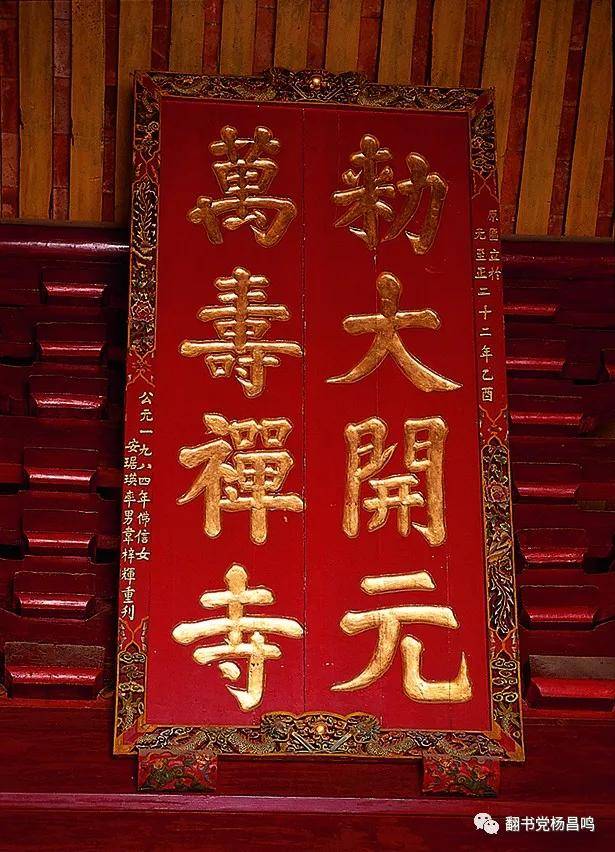 原匾立於
元至正二十二年乙酉
勅大開元
萬壽禪寺
公元一九八四年佛信女
安琚瑛率男韋梓輝重刊
翻书党杨昌鸣